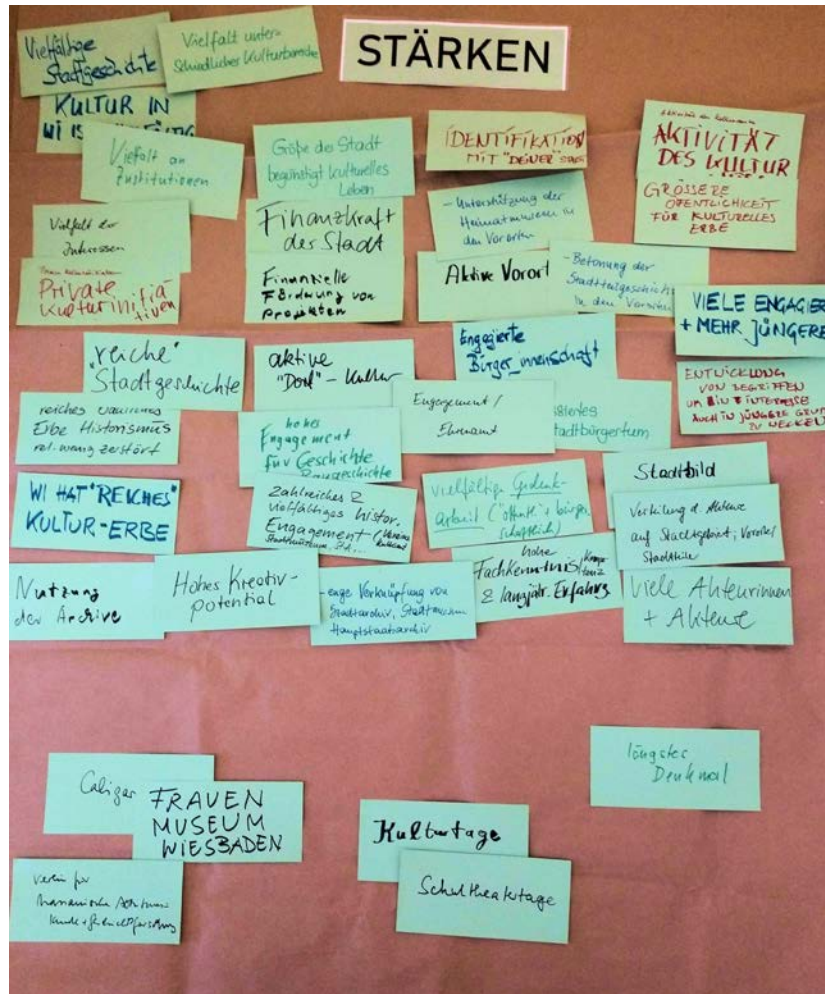 STÄRKEN
Vielfältige
Stadtgeschichte
Vielfalt unter-
schiedlicher Kulturbereiche
KULTUR IN
WI IS
Vielfalt an
Institutionen
Größe der Stadt
begünstigt kulturelles
Leben
IDENTIFIKATION
MIT "DEINER"
AKTIVITÄT
DES KULTUR
GRÖSSERE
ÖFENTLICHKEIT
FÜR KULTURELLES
ERBE
Vielfalt der
Interessen
Finanzkraft
der Stadt
- Unterstützung der
Heimatmuseen in
den Vororten
Private
Kulturinitia
tiven
Finanzielle
Förderung von
Projekten
Aktive Vorort
- Betonung der
Stadtteilgeschichte
in den Vororten
VIELE ENGAGIER
+ MEHR JÜNGERE
"reiche"
Stadtgeschichte
aktive
"Dorf" - Kultur
Engagierte
Bürger_innenschaft
ENTWICKLUNG
VON BEGRIFFEN
UM INTERESSE
AUCH IN JÜNGERE
ZU WECKEN
reiches
Erbe Historismus
rel. wenig zerstört
hohes
Engagement
für Geschichte
Engagement /
Ehrenamt
tadtbürgertum
WI HAT "REICHES"
KULTUR-ERBE
Zahlreiches &
vielfältiges histor.
Engagement (Vereine
Stadtmuseum
vielfältige Gedenk-
arbeit ("öffentl" + bürger
schaftlich)
Stadtbild
Verteilung d. Akteure
auf Stadtgebiet; Vororte/
Stadtteile
Nutzung
der Archive
Hohes Kreativ-
potential
- enge Verknüpfung von
Stadtarchiv, Stadtmuseum
Hauptstaatsarchiv
hohe
Fachkenntnis/
& langjähr. Erfahrg
Viele Akteurinnen
+ Akteure
längstes
Denkmal
Caligari
FRAUEN
MUSEUM
WIESBADEN
Kulturtage
Schultheatertage
Verein für